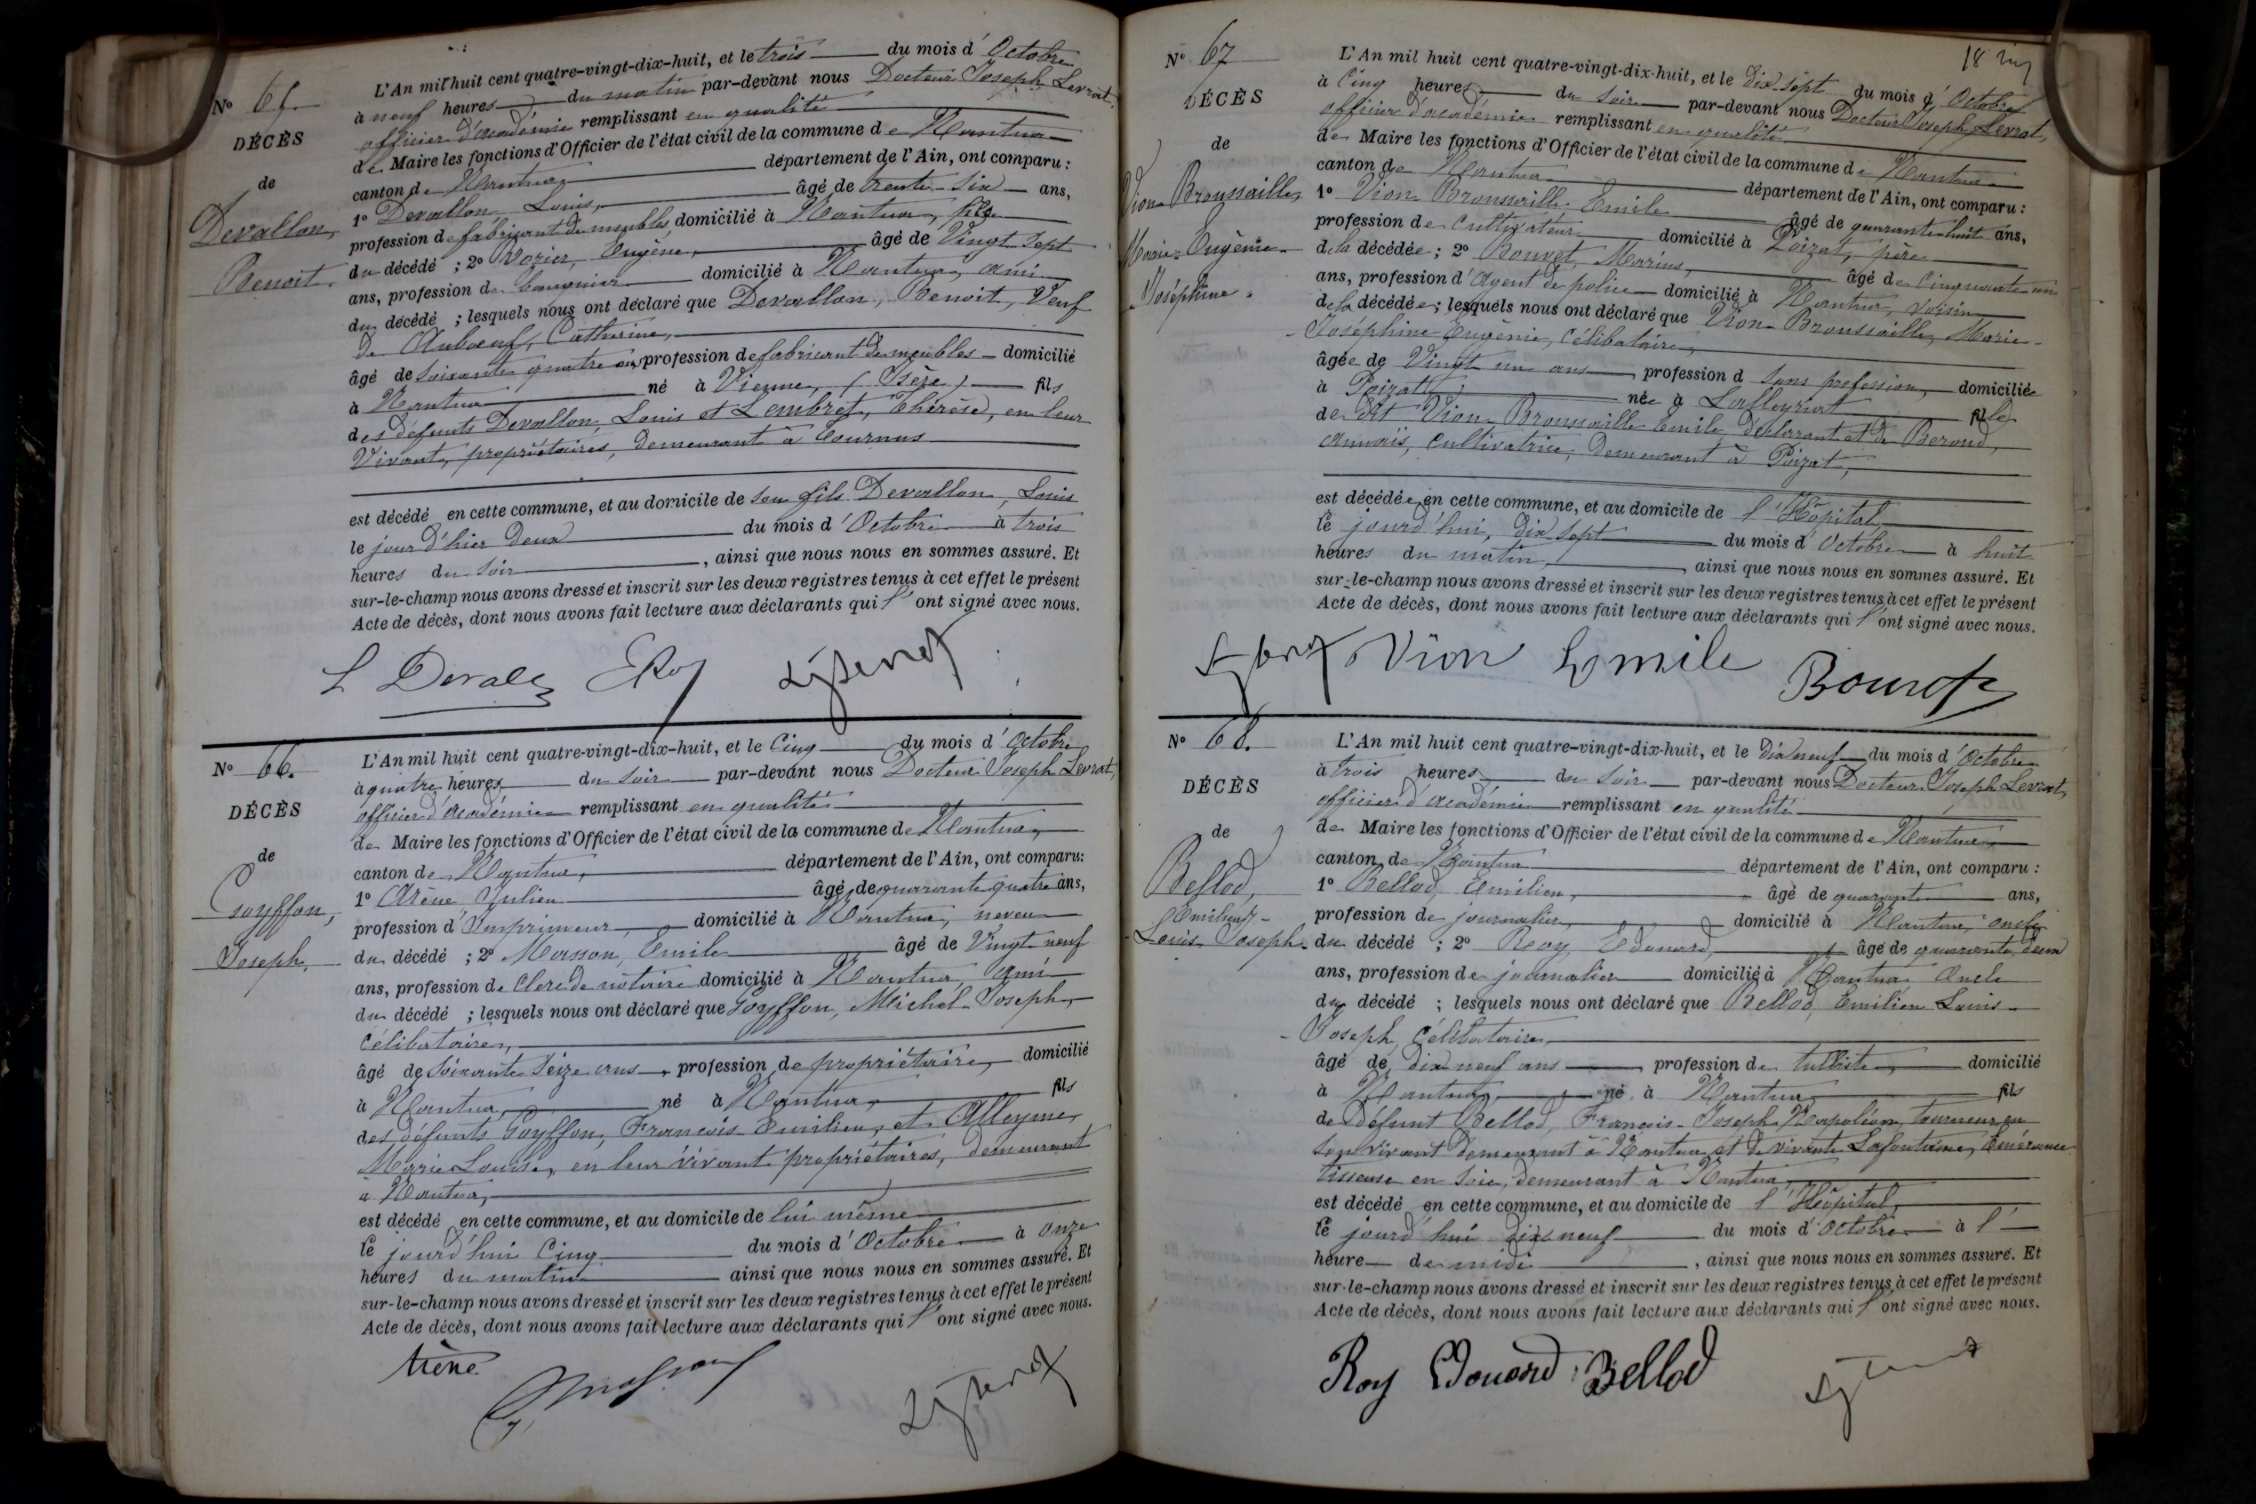 No 65.
DÉCÈS
de
Devallon,
Benoit.
L'An mil huit cent quatre-vingt-dix-huit, et le trois du mois d'Octobre
à neuf heures du matin par-devant nous Docteur Joseph Levrat,
officier d'académie remplissant en qualité
de Maire les fonctions d'Officier de l'état civil de la commune de Nantua
canton de Nantua département de l'Ain, ont comparu :
1o Devallon Louis, âgé de trente-six ans,
profession de fabricant de meubles, domicilié à Nantua, fils
du décédé ; 2o Eugène, âgé de Vingt sept
ans, profession de domicilié à Nantua, ami
du décédé ; lesquels nous ont déclaré que Devallon, Benoit, Veuf
de Catherine,
âgé de soixante quatre ans, profession de fabricant de meubles domicilié
à Nantua né à Vienne, (Isère) fils
des défunts Devallon, Louis et Thérèse, en leur
Vivant, propriétaires, demeurant à Tournus
est décédé en cette commune, et au domicile de son fils Devallon, Louis
le jour d'hier deux du mois d'Octobre à trois
heures du soir, ainsi que nous nous en sommes assuré. Et
sur-le-champ nous avons dressé et inscrit sur les deux registres tenus à cet effet le présent
Acte de décès, dont nous avons fait lecture aux déclarants qui l'ont signé avec nous.
No 66.
DÉCÈS
de
Goyffon,
Joseph,
L'An mil huit cent quatre-vingt-dix-huit, et le Cinq du mois d'Octobre
à quatre heures du soir par-devant nous Docteur Joseph Levrat,
officier d'académie remplissant en qualité
de Maire les fonctions d'Officier de l'état civil de la commune de Nantua,
canton de Nantua, département de l'Ain, ont comparu:
1o Arène Julien âgé de quarante quatre ans,
profession d'Imprimeur domicilié à Nantua, neveu
du décédé ; 2o Masson, Emile âgé de Vingt neuf
ans, profession de Clerc de notaire domicilié à Nantua, ami
du décédé ; lesquels nous ont déclaré que Goyffon, Michel-Joseph,
Célibataire,
âgé de Soixante Seize ans, profession de propriétaire, domicilié
à Nantua, né à Nantua, fils
des défunts Goyffon, François-Emilien, et Alleyme,
Marie Louise, en leur vivant propriétaires, demeurant
à Nantua,
est décédé en cette commune, et au domicile de lui même
le jourd'hui Cinq du mois d'Octobre à onze
heures du matin ainsi que nous nous en sommes assuré. Et
sur-le-champ nous avons dressé et inscrit sur les deux registres tenus à cet effet le présent
Acte de décès, dont nous avons fait lecture aux déclarants qui l'ont signé avec nous.
Arène
No 67
DÉCÈS
de
Vion-Broussaille,
Marie-Eugénie-
Joséphine.
L'An mil huit cent quatre-vingt-dix-huit, et le dix sept du mois d'Octobre
à Cinq heures du soir par-devant nous Docteur Joseph Levrat,
officier d'académie remplissant en qualité
de Maire les fonctions d'Officier de l'état civil de la commune de Nantua
canton de Nantua département de l'Ain, ont comparu :
1o Vion-Broussaille Emile âgé de quarante-huit ans,
profession de Cultivateur domicilié à Poizat, père
de la décédée ; 2o Bouvet, Marius, âgé de Cinquante un
ans, profession d'agent de police domicilié à Nantua, voisin
de la décédée ; lesquels nous ont déclaré que Vion-Broussaille, Marie-
Joséphine-Eugénie, Célibataire,
âgée de Vingt un ans profession d sans profession, domiciliée
à Poizat, née à Lalleyriat fille
de dit Vion-Broussaille Emile, déclarant et de Beroud,
cultivatrice, demeurant à Poizat,
est décédée en cette commune, et au domicile de l'Hôpital
le jourd'hui, dix sept du mois d'Octobre à huit
heures du matin, ainsi que nous nous en sommes assuré. Et
sur-le-champ nous avons dressé et inscrit sur les deux registres tenus à cet effet le présent
Acte de décès, dont nous avons fait lecture aux déclarants qui l'ont signé avec nous.
Vion Emile
No 68.
DÉCÈS
de
Bellod,
Emilien-
Louis-Joseph.
L'An mil huit cent quatre-vingt-dix-huit, et le dix neuf du mois d'Octobre
à trois heures du soir par-devant nous Docteur Joseph Levrat,
officier d'académie remplissant en qualité
de Maire les fonctions d'Officier de l'état civil de la commune de Nantua,
canton de Nantua département de l'Ain, ont comparu :
1o Bellod, Emilien, âgé de quarante ans,
profession de journalier, domicilié à Nantua, oncle
du décédé ; 2o Roy Edouard, âgé de quarante deux
ans, profession de journalier domicilié à Nantua Oncle
du décédé ; lesquels nous ont déclaré que Bellod, Emilien Louis-
Joseph, Célibataire,
âgé de dix neuf ans profession de domicilié
à Nantua né à Nantua fils
de défunt Bellod, François-Joseph-Napoléon, tourneur en
son vivant demeurant à Nantua et de vivante Lafontaine,
tisseuse en soie, demeurant à Nantua,
est décédé en cette commune, et au domicile de l'Hôpital,
le jourd'hui dix neuf du mois d'Octobre à l'
heure de midi, ainsi que nous nous en sommes assuré. Et
sur-le-champ nous avons dressé et inscrit sur les deux registres tenus à cet effet le présent
Acte de décès, dont nous avons fait lecture aux déclarants qui l'ont signé avec nous.
Roy Edouard Bellod